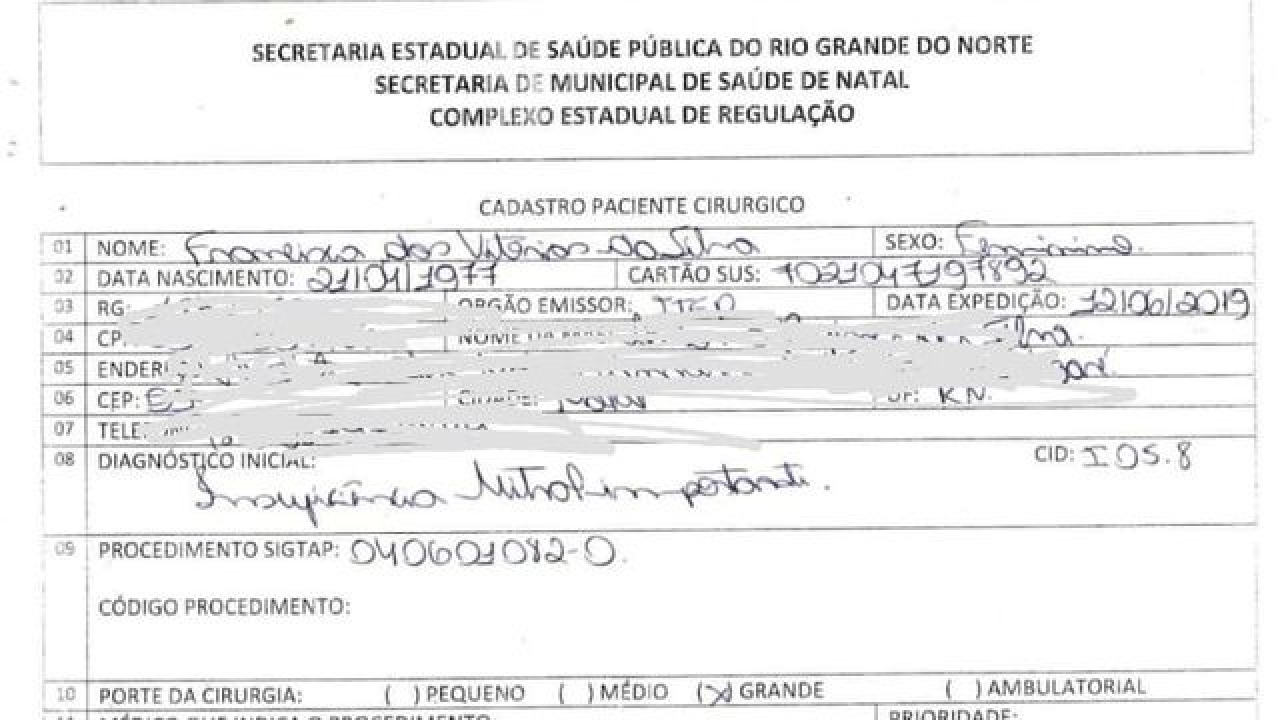 SECRETARIA ESTADUAL DE SAÚDE PÚBLICA DO RIO GRANDE DO NORTE
SECRETARIA DE MUNICIPAL DE SAÚDE DE NATAL
COMPLEXO ESTADUAL DE REGULAÇÃO
CADASTRO PACIENTE CIRURGICO
01 NOME: Francisca das Vitórias da Silva SEXO: Feminino.
02 DATA NASCIMENTO: 21/01/1977 CARTÃO SUS: 7021047197892
03 RG: ORGÃO EMISSOR: DATA EXPEDIÇÃO: 12/06/2019
04 NOME DA
05
06 CEP: CIDADE: UF: RN.
07
08 DIAGNÓSTICO INICIAL: CID: I05.8
Insuficiência Mitral importante.
09 PROCEDIMENTO SIGTAP: 040601082-0.
CÓDIGO PROCEDIMENTO:
10 PORTE DA CIRURGIA: ( ) PEQUENO ( ) MÉDIO (X) GRANDE ( ) AMBULATORIAL
11 MÉDICO QUE INDICA O PROCEDIMENTO PRIORIDADE: